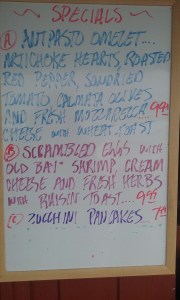 SPECIALS
(A) ANTIPASTO OMELET....
ARTICHOKE HEARTS, ROASTED
RED PEPPER, SUNDRIED
TOMATO, CALMATA OLIVES
AND FRESH MOZZARELLA 9.99
CHEESE WITH WHEAT TOAST
(B) SCRAMBLED EGGS WITH
"OLD BAY" SHRIMP, CREAM
CHEESE AND FRESH HERBS
WITH RAISIN TOAST.... 9.99
(C) ZUCCHINI PANCAKES